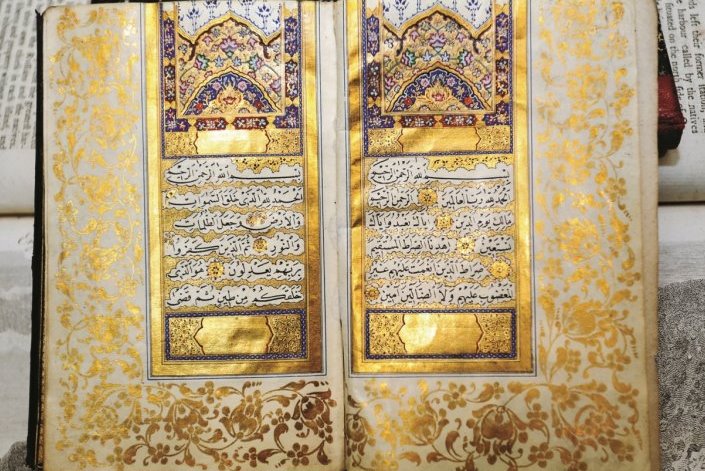 بسم الله الرحمن الرحيم
الحمد لله رب العالمين الرحمن الرحيم
مالك يوم الدين اياك نعبد واياك
نستعين اهدنا الصراط المستقيم
صراط الذين انعمت عليهم غير
المغضوب عليهم ولا الضالين
بسم الله الرحمن الرحيم
الحمد لله الذي خلق السموات
والارض وجعل الظلمات
والنور ثم الذين كفروا
بربهم يعدلون هو الذي
خلقكم من طين ثم قضى
left their former
harbour called by the natives
on the north